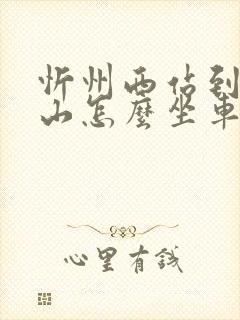 忻州西站到
山怎麼坐車
心里有錢